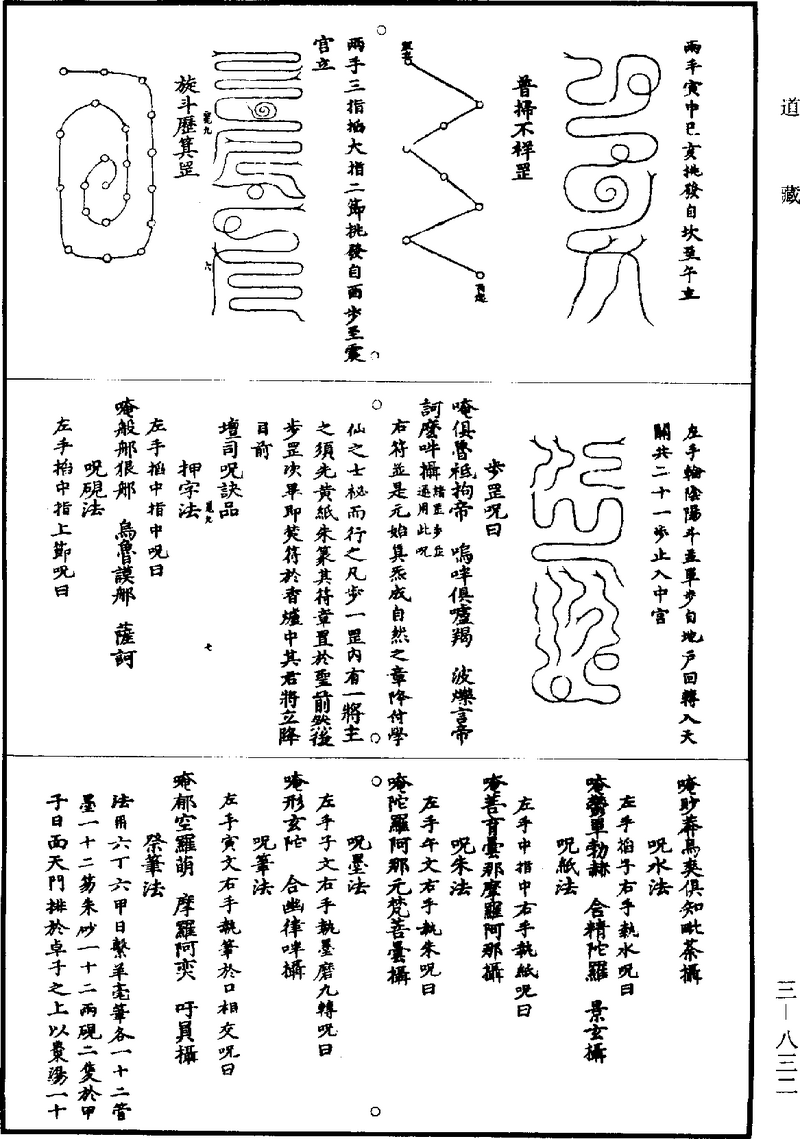 道藏
兩手寅申巳亥挑發自坎至午立
普掃不祥罡
兩手三指掐大指二節挑發自西步至震
宮立
旋斗歷箕罡
左手輪陰陽斗並單步自地戶回轉入天
關共二十一步止入中宮
步罡呪曰
唵俱魯祗拘帝 嗚吽俱嚧羯 波爍言帝
訶麼吽攝 諸罡步並通用此呪
右符並是元始真炁成自然之章降付學
仙之士祕而行之凡步一罡內有一將主
之須先黃紙朱篆其符章置於聖前然後
步罡次畢即焚符於香爐中其君將立降
目前
壇司呪訣品
押字法
左手掐中指中呪曰
唵般那狠那 烏魯謨那 薩訶
呪硯法
左手掐中指上節呪曰
七
唵眇莽烏奭俱知毗茶攝
呪水法
左手掐子右手執水呪曰
唵勞單勃赫 含精陀羅 景玄攝
呪紙法
左手中指中右手執紙呪曰
唵善育雲那摩羅阿那攝
呪朱法
左手午文右手執朱呪曰
唵陀羅阿那元梵菩曇攝
呪墨法
左手子文右手執墨磨九轉呪曰
唵形玄陀 合幽律吽攝
呪筆法
左手寅文右手執筆於口相交呪曰
唵郁空羅萌 摩羅阿奕 吁員攝
祭筆法
法用六丁六甲日繫羊毫筆各一十二管
墨一十二笏朱砂一十二兩硯二隻於甲
子日面天門排於卓子之上以棗湯一十
三—八三二